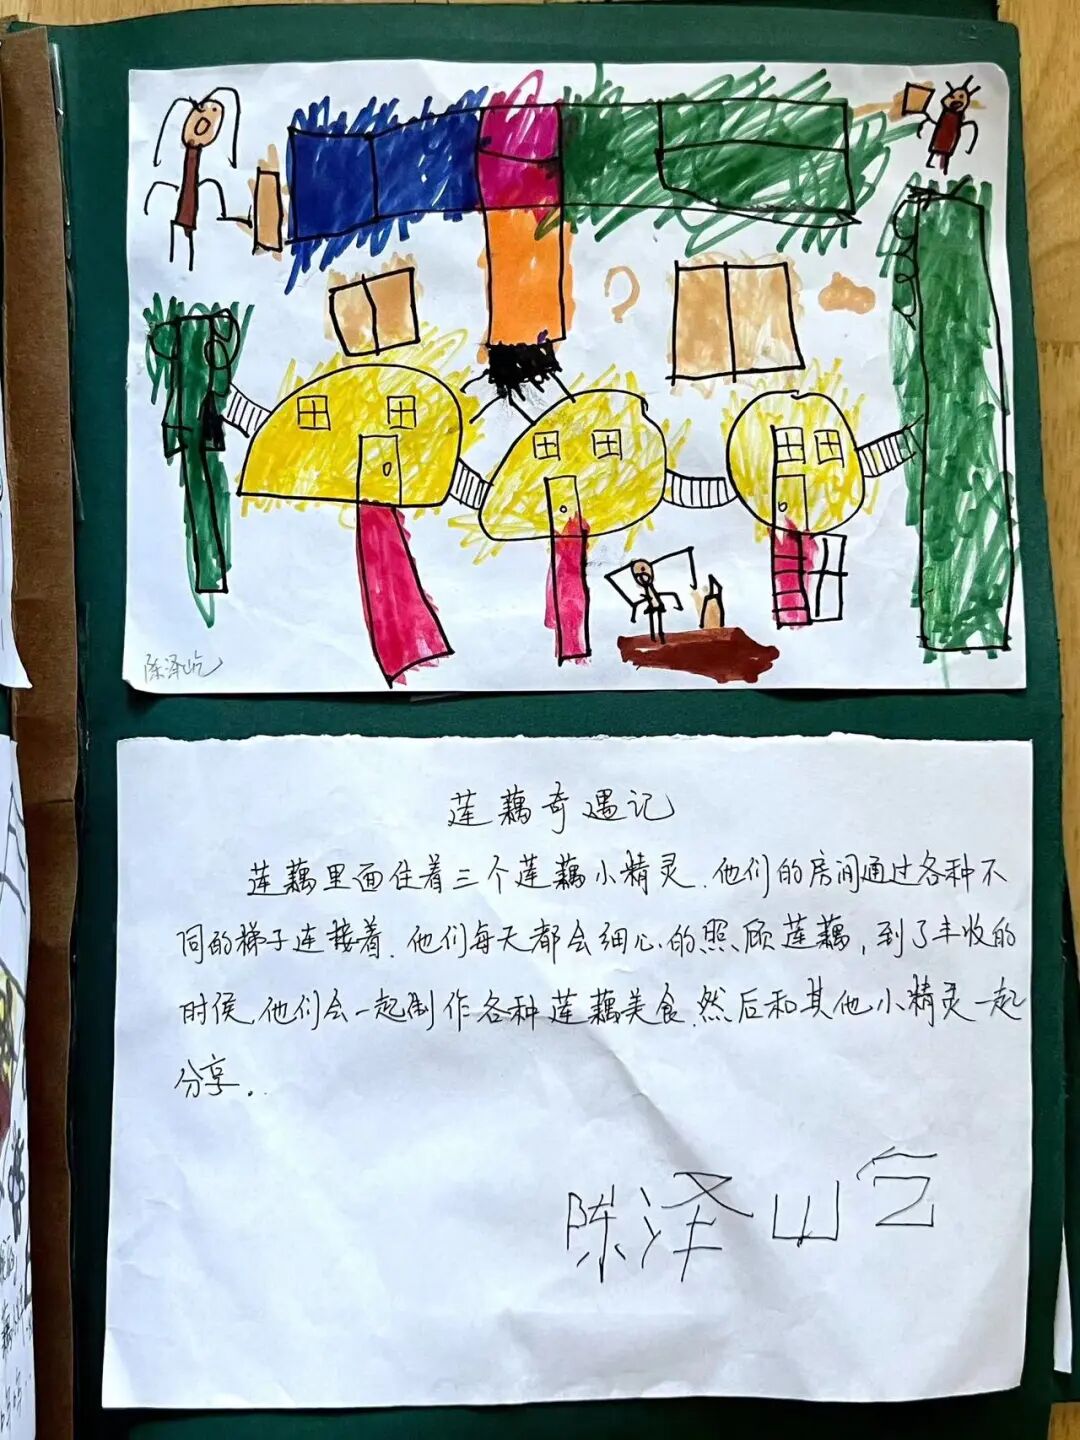 陈泽屹
莲藕奇遇记
莲藕里面住着三个莲藕小精灵.他们的房间通过各种不
同的梯子连接着.他们每天都会细心的照顾莲藕,到了丰收的
时侯,他们会一起制作各种莲藕美食.然后和其他小精灵一起
分享.
陈泽屹